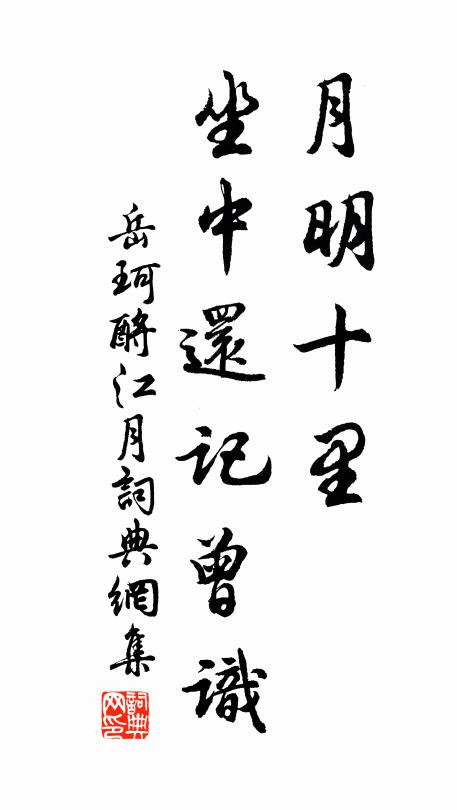 月明十里
坐中還記曾識
岳珂酹江月詞典網集
詞典网印